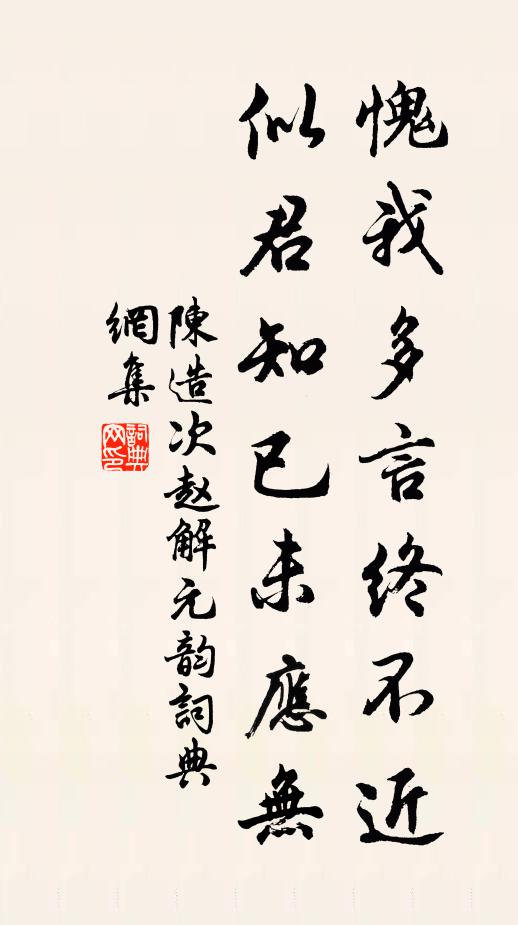 愧我多言终不近
似君知已未應無
陳造次赵解元韵詞典
網集
詞典
网印